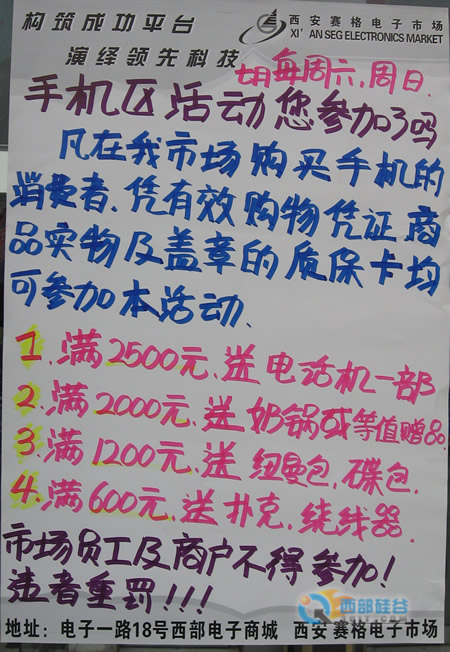 构筑成功平台
演绎领先科技
西安赛格电子市场
XI'AN SEG ELECTRONICS MARKET
每周六、周日.
手机区活动您参加了吗
凡在我市场购买手机的
消费者、凭有效购物凭证商
品实物及盖章的质保卡均
可参加本活动、
1、满2500元、送电话机一部
2、满2000元、送奶锅或等值赠品.
3、满1200元、送纽曼包、碟包.
4、满600元、送扑克、绕线器.
市场员工及商户不得参加!
违者重罚!!!
西部硅谷
地址:电子一路18号西部电子商城 西安赛格电子市场